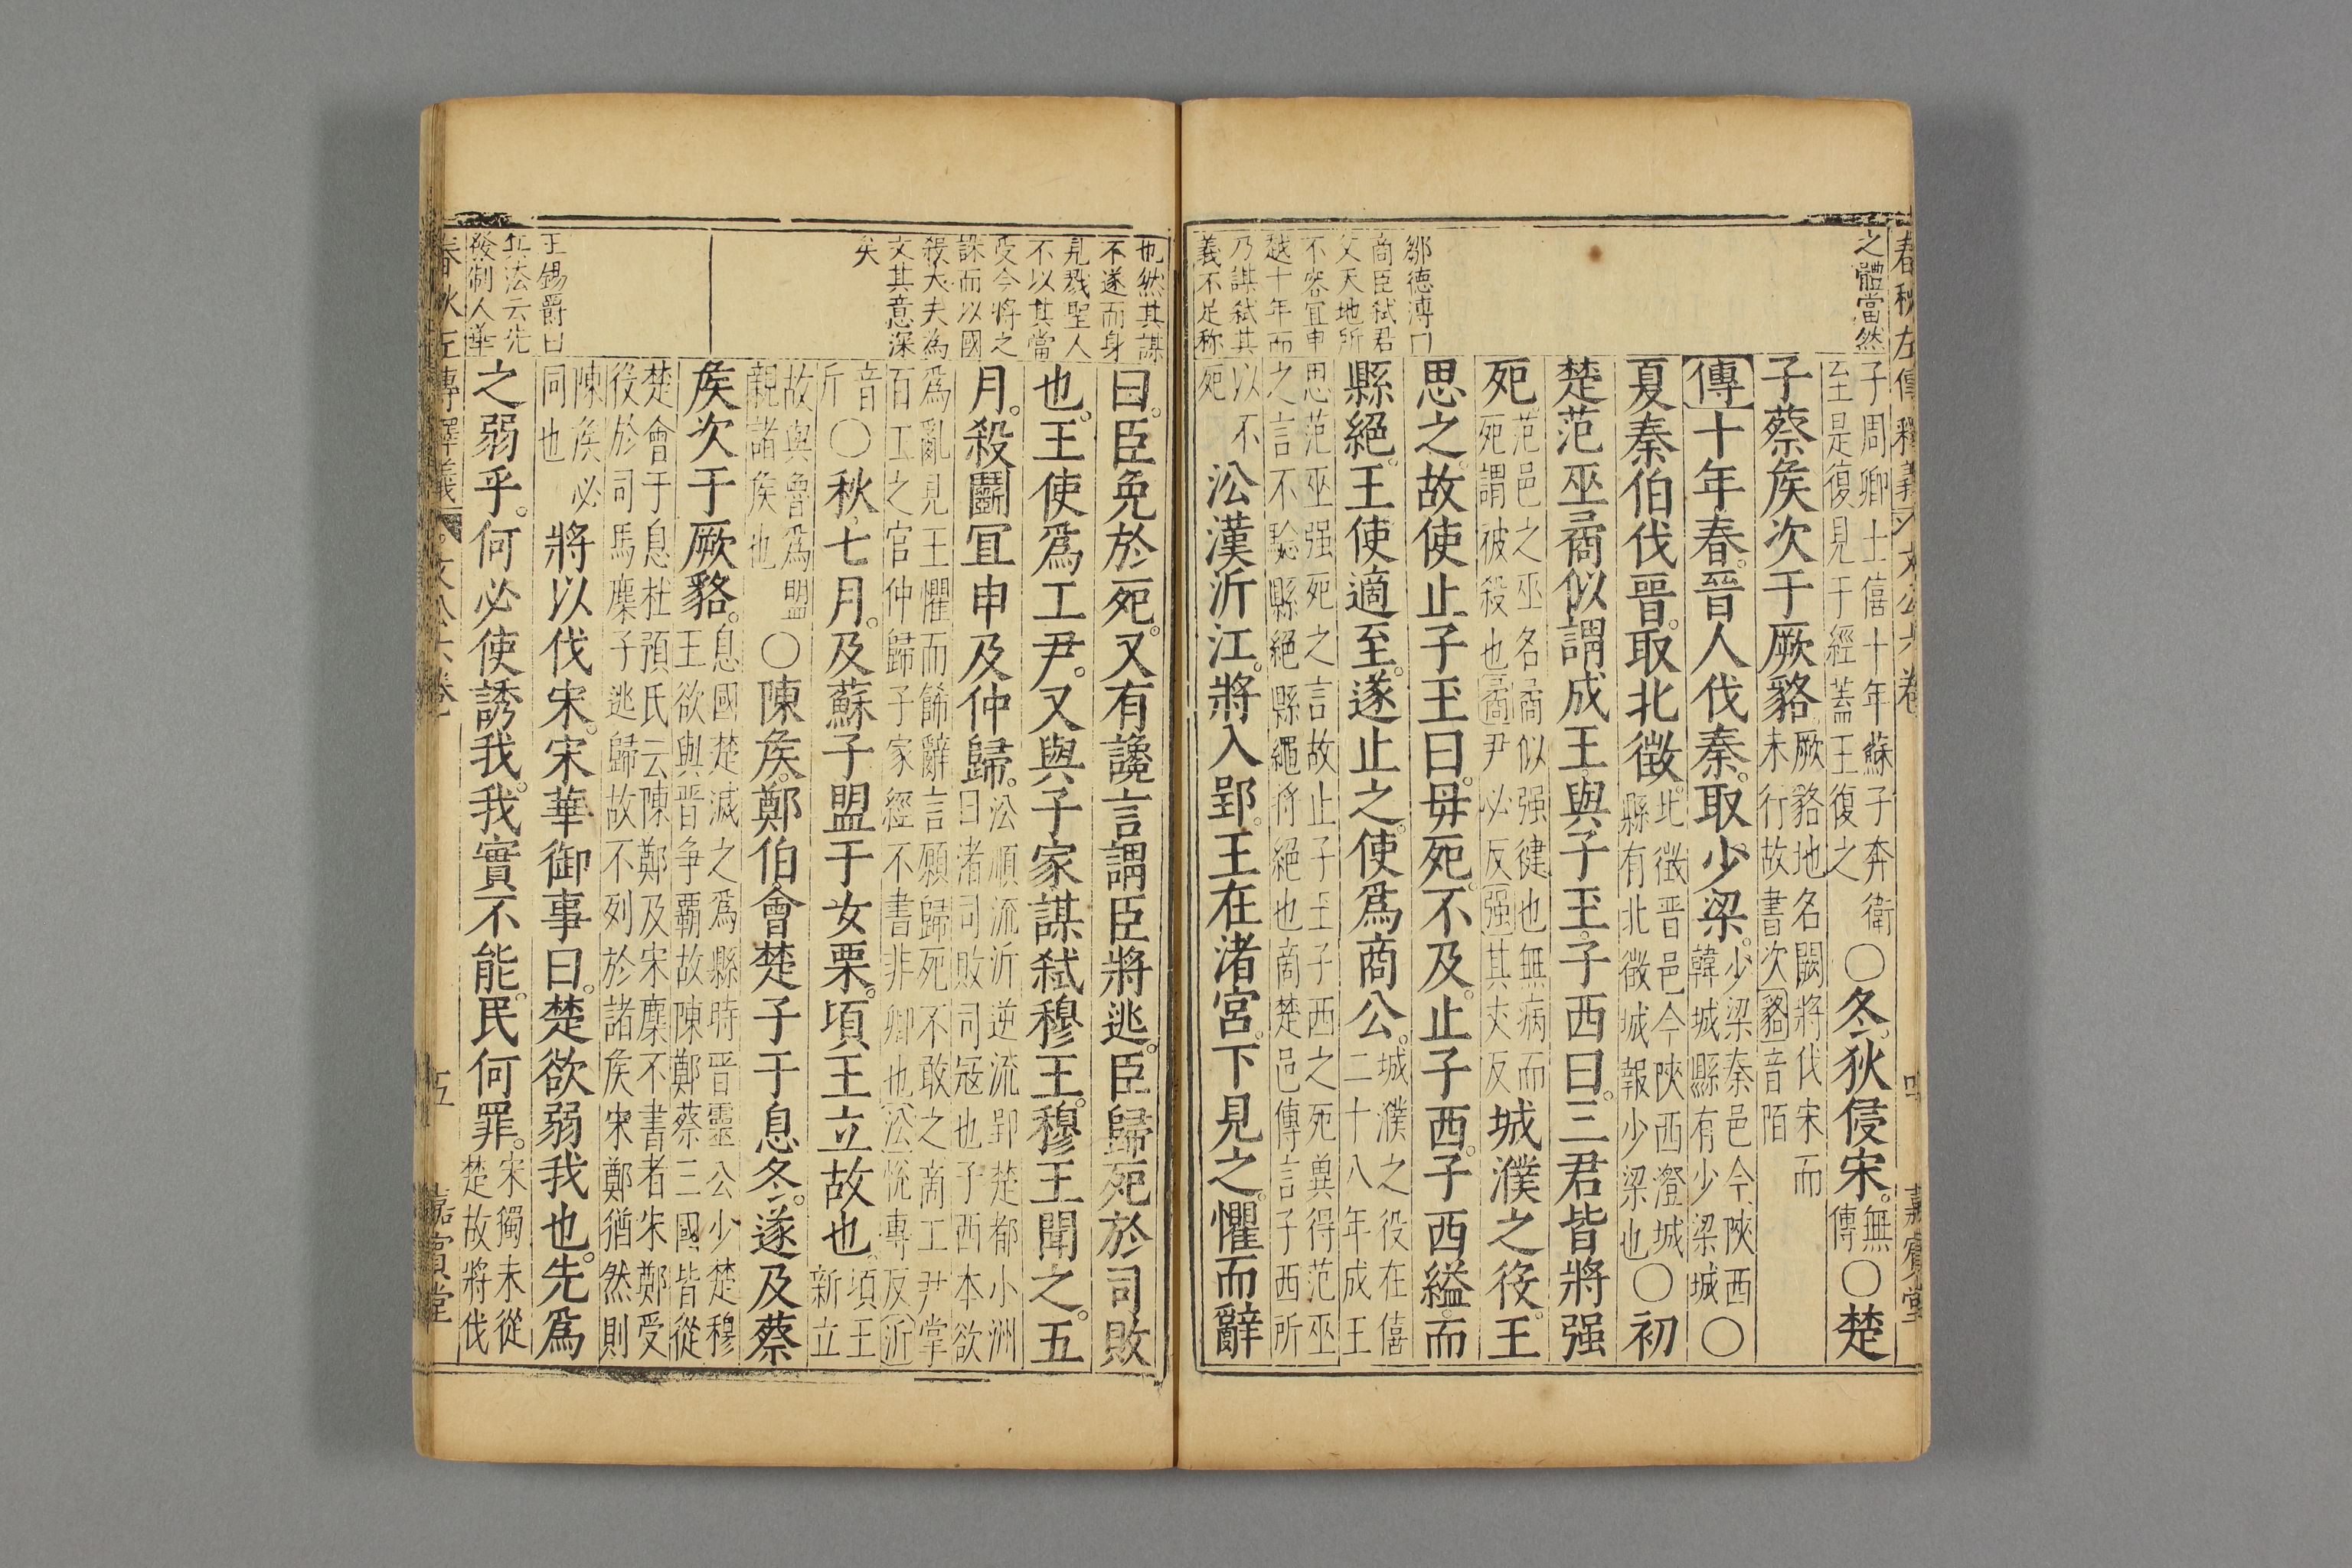 春秋左傳釋義 文公六卷 嘉賓堂
之體當然
鄒德溥曰
商臣弑君
父天地所
不容宜申
越十年而
乃謀弑其
義不足称
子周卿士僖十年蘇子奔衛
至是復見于經蓋王復之
○冬狄侵宋。無傳○楚
子蔡矦次于厥貉
厥貉地名闕將伐宋而
未行故書次貉音陌
傳十年春。晉人伐秦。取少梁。
少梁秦邑今陜西
韓城縣有少梁城
○
夏秦伯伐晉。取北徵。
北徵晋邑今陜西澄城
縣有北徵城報少梁也
○初
楚范巫矞似謂成王與子玉。子西曰。三君皆將强
死
范邑之巫名矞似强健也無病而
死謂被殺也矞尹必反强其丈反
城濮之役。王
思之。故使止子玉曰。毋死。不及。止子西。子西縊。而
縣絕。王使適至。遂止之。使爲商公。
城濮之役在僖
二十八年成王
思范巫强死之言故止子王子西之死兾得范巫
之言不驗縣絕縣繩將絕也商楚邑傳言子西所
以不
死
沿漢泝江。將入郢。王在渚宮。下見之。懼而辭
也然其謀
不遂而身
見戮聖人
不以其當
受今將之
誅而以國
殺大夫為
文其意深
矣
王錫爵曰
兵法云先
發制人華
曰。臣免於死。又有讒言謂臣將逃。臣歸死於司敗
也。王使爲工尹。又與子家謀弒穆王。穆王聞之。五
月。殺鬬宜申及仲歸。
沿順流泝逆流郢楚都小洲
曰渚司敗司冦也子西本欲
爲亂見王懼而飾辭言願歸死不敢之商工尹掌
百工之官仲歸子家經不書非卿也沿恱專反泝
音
斤
○秋七月。及蘇子盟于女栗。頃王立故也。
頃王
新立
故與魯爲盟
親諸矦也
○陳矦。鄭伯會楚子于息冬。遂及蔡
矦次于厥貉。
息國楚滅之爲縣時晋靈公少楚穆
王欲與晋争覇故陳鄭蔡三國皆從
楚會于息杜預氏云陳鄭及宋麇不書者宋鄭受
役於司馬麇子逃歸故不列於諸矦宋鄭猶然則
陳矦必
同也
將以伐宋。宋華御事曰。楚欲弱我也。先爲
之弱乎。何必使誘我。我實不能。民何罪。
宋獨未從
楚故將伐
春秋左傳釋義 文公六卷 五 嘉賓堂